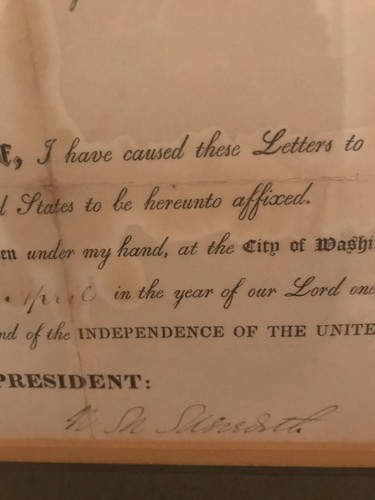 I have caused these Letters to
States to be hereunto affixed.
under my hand, at the City of
April in the year of our Lord one
of the INDEPENDENCE OF THE
PRESIDENT:
W M Meredith